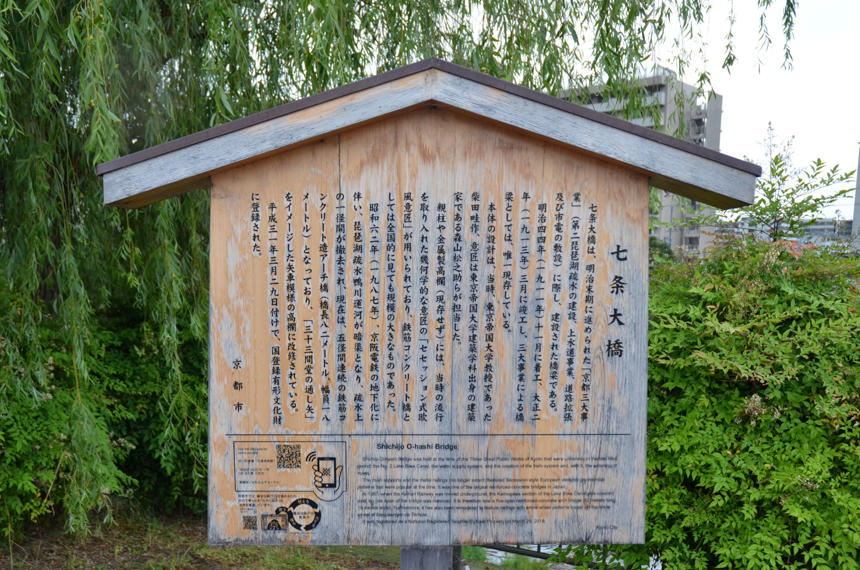 七条大橋
七条大橋は、明治末期に進められた「京都三大事
業」（第二琵琶湖疏水の建設、上水道事業、道路拡張
及び市電の敷設）に際し、建設された橋梁である。
明治四四年（一九一一年）十一月に着工、大正二
年（一九一三年）三月に竣工し、三大事業による橋
梁としては、唯一現存している。
本体の設計は、当時、東京帝国大学教授であった
柴田畦作、意匠は東京帝国大学建築学科出身の建築
家である森山松之助らが担当した。
親柱や金属製高欄（現存せず）には、当時の流行
を取り入れた幾何学的な意匠の「セセッション式欧
風意匠」が用いられており、鉄筋コンクリート橋と
しては全国的に見ても規模の大きなものであった。
昭和六二年（一九八七年）、京阪電鉄の地下化に
伴い、琵琶湖疏水鴨川運河が暗渠となり、疏水上
の一径間が撤去され、現在は、五径間連続の鉄筋コ
ンクリート造アーチ橋（橋長八二メートル、幅員一八
メートル）となっており、「三十三間堂の通し矢」
をイメージした矢車模様の高欄に改修されている。
平成三一年三月二九日付けで、国登録有形文化財
に登録された。
京都市
Shichijo O-hashi Bridge